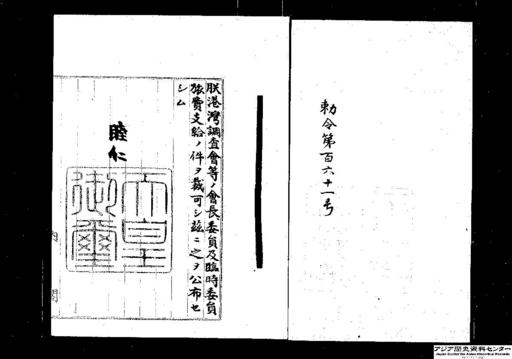 勅令第百六十一号
朕港灣調査會等ノ會長委員及臨時委員
旅費支給ノ件ヲ裁可シ玆ニ之ヲ公布セ
シム
睦仁
天皇
御璽
内閣
アジア歴史資料センター
Japan Center for Asian Historical Records